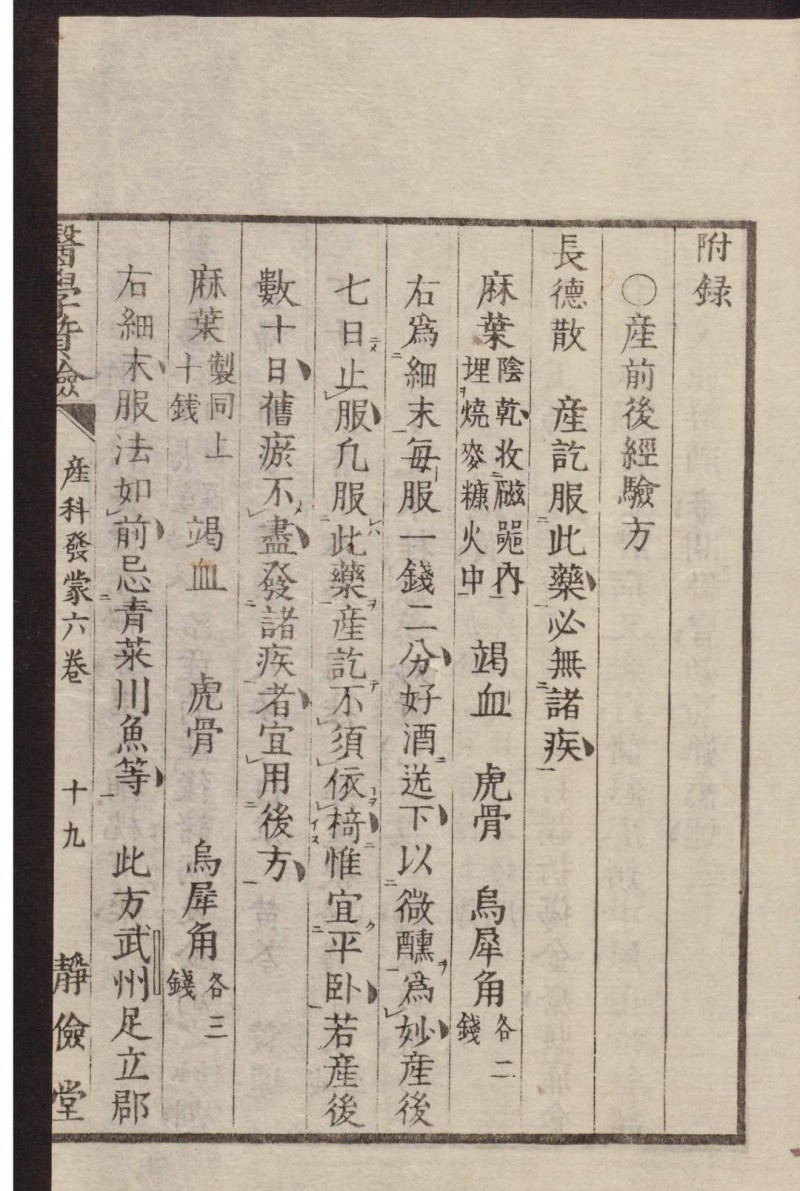 附録
〇産前後經驗方
長德散　産訖服此藥必無諸疾
麻葉陰乾收磁噐內埋燒麥糠火中　竭血　虎骨　烏犀角各二錢
右爲細末每服一錢二分好酒送下以微醺爲妙産後
七日止服凢服此藥産訖不須依椅惟宜平卧若産後
數十日舊瘀不盡發諸疾者宜用後方
麻葉製同上十錢　竭血　虎骨　烏犀角各三錢
右細末服法如前忌青菜川魚等　此方武州足立郡
產科發蒙六卷　十九　靜儉堂